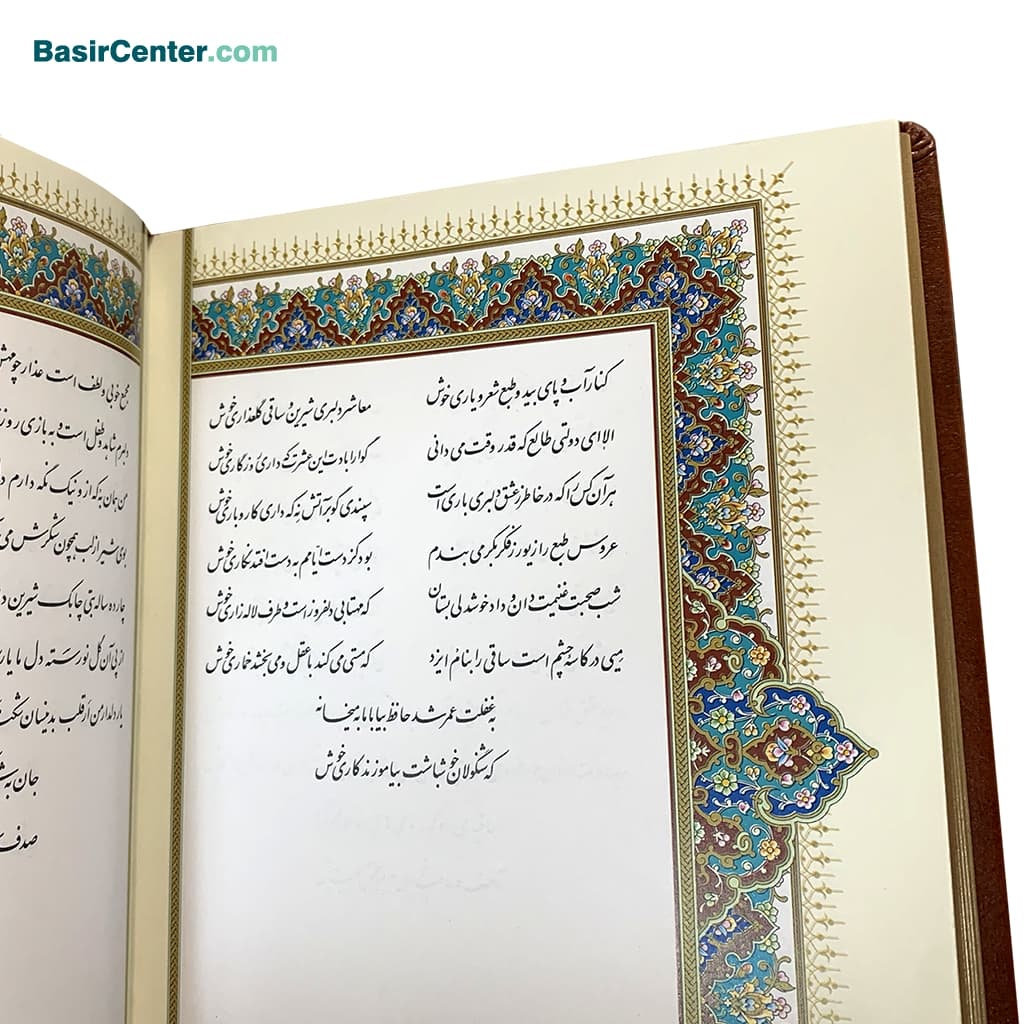 BasirCenter.com
کنار آب و پای بید و طبع شعر و یاری خوش
معاشر دلبری شیرین و ساقی گلعذاری خوش
الا ای دولتی طالع که قدر وقت می دانی
گوارا بادت این عشرت که داری روزگاری خوش
هر آن کس را که در خاطر ز عشق دلبری باری است
سپندی گو بر آتش نه که داری کار و باری خوش
عروس طبع را زیور ز فکر بکر می بندم
بود کز دست ایامم به دست افتد نگاری خوش
شب صحبت غنیمت دان و داد خوشدلی بستان
که مهتابی دلفروز است و طرف لاله زاری خوش
میی در کاسه چشم است ساقی را بنام ایزد
که مستی می کند با عقل و می بخشد خماری خوش
به غفلت عمر شد حافظ بیا با ما به میخانه
که شنگولان خوش باشت بیاموزند کاری خوش
مجمع خوبی و لطف است عذار چو مهش
دلبرم شاهد و طفل است و به بازی روز
من همان به که از و نیک نگه دارم
بوی شیر از لب همچون شکرش می
چارده ساله بتی چابک شیرین
از پی آن گل نورسته دل ما
یار دلدار من ار قلب بدینسان شکند
جان به
صدف